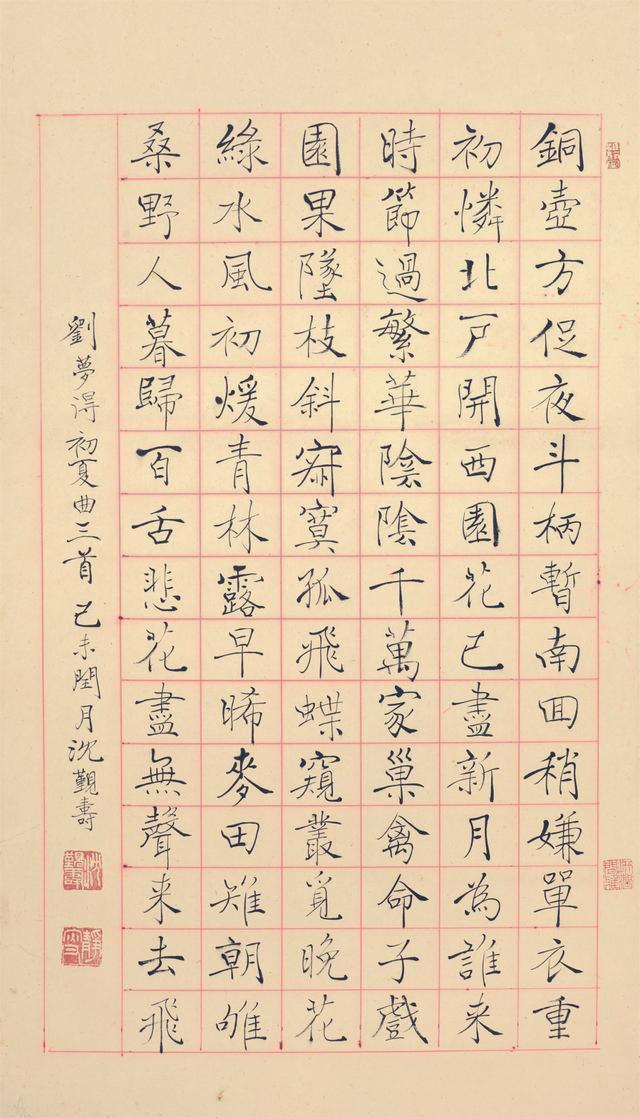 銅壺方促夜斗柄暫南囬稍嫌單衣重
初憐北戶開西園花已盡新月為誰来
時節過繁華陰陰千萬家巢禽命子戲
園果墜枝斜寂寞孤飛蝶窺叢覓晚花
綠水風初煖青林露早晞麥田雉朝雊
桑野人暮歸百舌悲花盡無聲来去飛
劉夢得初夏曲三首 己未閏月沈覲壽